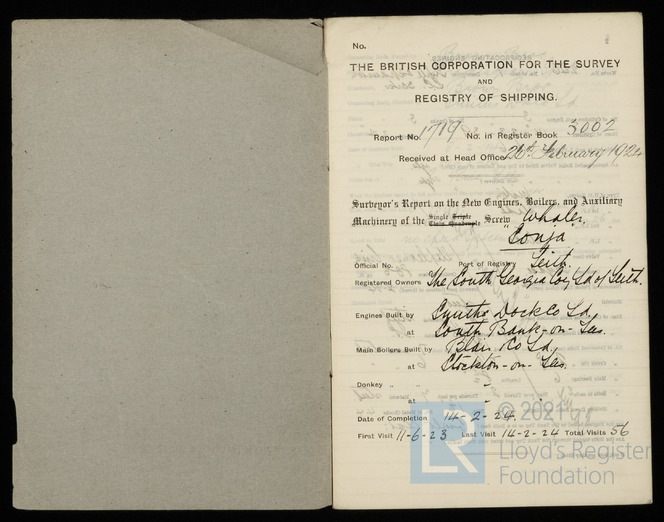 No.
THE BRITISH CORPORATION FOR THE SURVEY
AND
REGISTRY OF SHIPPING.
Report No. 1719 No. in Register Book 3002
Received at Head Office 26th February 1924
Surveyor's Report on the New Engines, Boilers, and Auxiliary
Machinery of the Single Triple Screw Whaler
Twin Quadruple
"Sonja"
Official No. Port of Registry Leith.
Registered Owners The South Georgia Coy Ld of Leith.
Engines Built by Smiths Dock Co Ld,
at South Bank-on-Tees.
Main Boilers Built by Blair Co Ld,
at Stockton-on-Tees.
Donkey " "
at "
Date of Completion 14-2-24.
First Visit 11-6-23 Last Visit 14-2-24 Total Visits 56
© 2021
LR
Lloyd's Register
Foundation